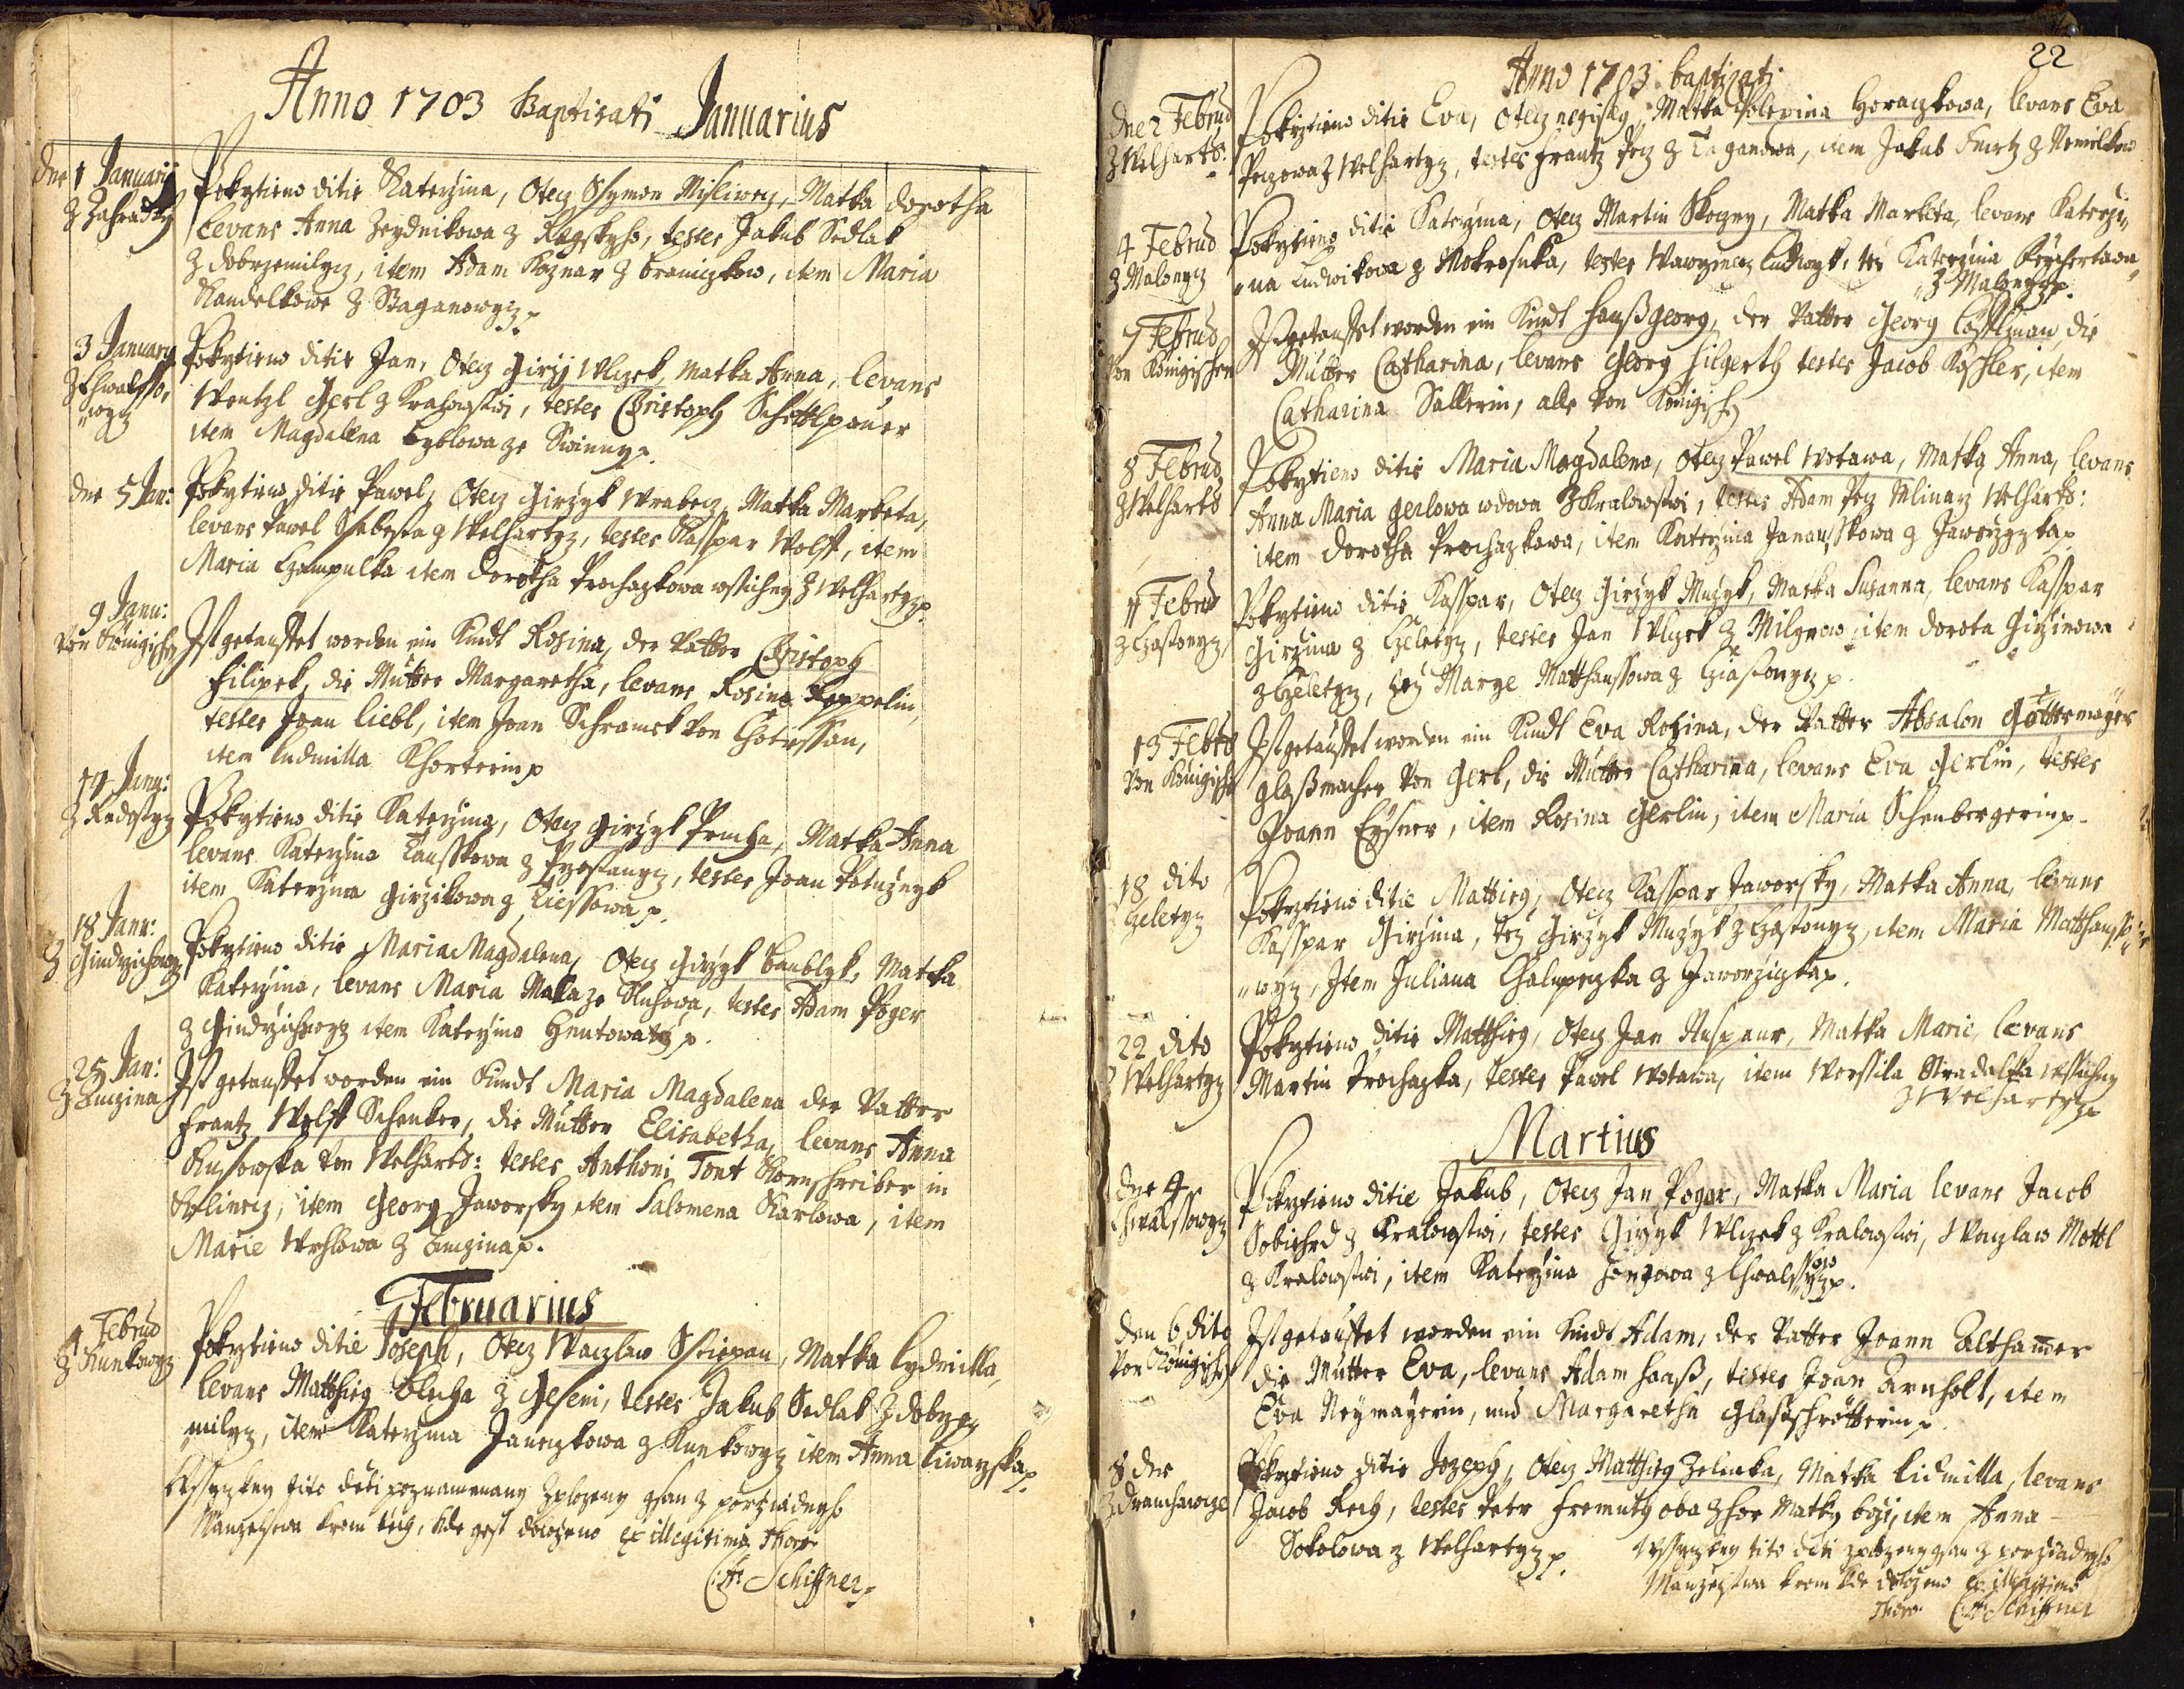 Anno 1703 Baptisati Januarius
Dne 1 Januarij
z Zahradky
Pokrztieno ditie Katerzina, Otecz Ssymon Misliwecz, Matka Dorotha
levans Anna Zeydnikowa z Rogskyho, testes Jakub Sedlak
z Dobrzemilycz, item Adam Koznar z Braniczkow, item Maria
Kandelkowa z Baganowycz p.
3 January
z Chwalsso„
„wycz
Pokrztieno ditie Jan, Otecz Girzj Wlczek, Matka Anna, levans
Wentzl Gerl z Kralowstwi, testes Christoph Schettlpauer
item Magdalena Cyblowa ze Swinny p.
dne 5 Jan:
Pokrztieno ditie Pawel, Otecz Girzyk Wrabecz, Matka Markета,
levans Pawel Ssebesta z Welhartycz, testes Kasspar Wolff, item
Maria Czampulka item Dorotha Prochazkowa wssichny z Welhartycz p.
9 Janu:
Von Königischen
Ist getauffet worden ein Kindt Rosina, der Vatter Christoph
Filipek, die Mutter Margaretha, levans Rosina Keppelin,
testes Joan Liebl, item Joan Schramek von Chotiessau,
item Ludmilla Khorterin p
14 Janu:
z Radostycz
Pokrztieno ditie Katerzina, Otecz Girzyk Prucha, Matka Anna
levans Katerzina Tausskowa z Przestanycz, testes Joan Potuznyk
item Katerzina Girzikowa z Tiessowa p.
18 Janr:
z Gindrzichowycz
Pokrztieno ditie Maria Magdalena, Otecz Girzyk Baublyk, Matka
Katerzina, levans Maria Mala ze Sluhowa, testes Adam Poger
z Gindrzichowycz item Katerzina Hnutowa tez p.
25 Jan:
z Luczina
Ist getauffet worden ein Kindt Maria Magdalena der Vatter
Frantz Wolff Schenker, die Mutter Elisabetha, levans Anna
von Welhartiz: testes Anthoni Tont Kornschreiber in
Kolinecz, item Georg Jaworsky, item Salomena Karlowa, item
Marie Wrhlowa z Luczina p.
Februarius
1 Februa
z Kunkowycz
Pokrztieno ditie Joseph, Otecz Waczlaw Sstiepan, Matka Lydmilla,
levans Matthieg Blecha z Geseni, testes Jakub Sedlak z Dobrze„
milycz, item Katerzina Janeczkowa z Kunkowycz item Anna Liwarzska p.
Wssyczkny tito dieti poznamenany Zplozeny gsau z porzadnyho
Manzelstwa krom tiech, kde gest dolozeno ex illegitimo Thoro
C: A: Schiffner
22
Anno 1703 baptizati
Dne 2 Februa
z Welhartiz:
Pokrztieno ditie Eva, Otecz negisty, Matka Polexina Horaczkowa, levans Eva
Peczowa z Welhartycz, testes Frantz Pecz z Taganowa, item Jakub Fuertz z Nemilkow
4 Februa
z Malonycz
Pokrztieno ditie Katerzina, Otecz Martin Skoczny, Matka Marketa, levans Katerzi„
„na Ludwikowa z Mokrosuka, testes Wawrzinecz Ludwyk, tez Katerzina Reychertowa
z Malonycz p.
7 Februa
Von Königischen
Ist getauffet worden ein Kindt Hanß Georg, der Vatter Georg Löfflman, die
Mutter Catharina, levans Georg Hilgerth testes Jacob Koshler, item
Catharina Sallerin, alle von Königisch
8 Februa
z Welhartiz
Pokrztieno ditie Maria Magdalena, Otecz Pawel Wotawa, Matka Anna, levans
Anna Maria Gerlowa wdowa z Kralowstwi, testes Adam Pecz Mlinarz Welhartiz:
item Dorotha Prochazkowa, item Katerzina Janausskowa z Jaworzyczka p.
11 Februa
z Czastonycz
Pokrztieno ditie Kasspar, Otecz Girzyk Muzyk, Matka Susanna, levans Kasspar
Girzina z Czeletycz, testes Jan Wlczek z Milynow, item Dorota Girzinowa
z Czeletycz, tez Marze Matthaussowa z Cziastonycz p.
13 Februa
Von Königisch
Ist getauffet worden ein Kindt Eva Rosina, der Vatter Absalon Göttermayer
Glaßmacher von Gerl, die Mutter Catharina, levans Eva Gerlin, testes
Joann Eysner, item Rosina Gerlin, item Maria Schenbergerin p.
18 dito
Czeletycz
Pokrztieno ditie Matthieg, Otecz Kasspar Jaworsky, Matka Anna, levans
Kasspar Girzina, tez Girzyk Muzyk z Czastonycz, item Maria Matthausso
„wycz, Item Juliana Chalupeczka z Jaworziczka p.
22 dito
Welhartycz
Pokrztieno ditie Matthieg, Otecz Jan Nuspaur, Matka Marie, levans
Martin Prochazka, testes Pawel Wotawa, item Worssila Stradalka wssichny
z Welhartycz p
Martius
dne 4
Chwalssowycz
Pokrztieno ditie Jakub, Otecz Jan Poger, Matka Maria levans Jacob
Sobiehrd z Kralowstwi, testes Girzyk Wlczek z Kralowstwi, Waczlaw Mottl
z Kralowstwi, item Katerzina Honzowa z Chwalssowycz p.
den 6 dito
Von Königisch
Ist getauffet worden ein Kindt Adam, der Vatter Joann Althamer
die Mutter Eva, levans Adam Haaß, testes Joan Arnholt, item
Eva Neymayerin, und Margaretha Glaßschrötterin p.
8 dne
z Drauchowicze
Pokrztieno ditie Jozeph, Otecz Matthieg Zelenka, Matka Lidmilla, levans
Jacob Rech, testes Petr Fremuth oba z Hor Matky bozi, item Anna
Sokolowa z Welhartycz p.
Wssyczkny tito dieti zplozeny gsau z porzadnyho
Manzelstwa krom kde dolozeno ex illegitimo
Thoro C: A: Schiffner